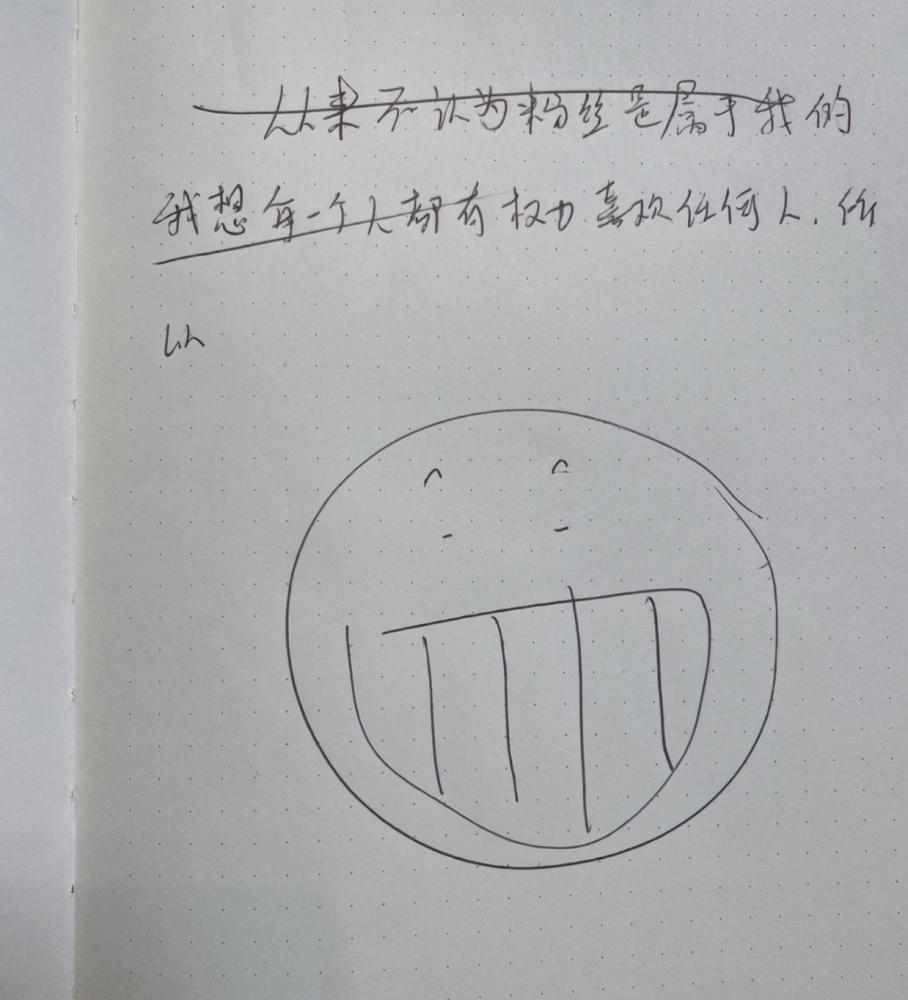 从来不认为粉丝是属于我的
我想每一个人都有权力喜欢任何人.所
以